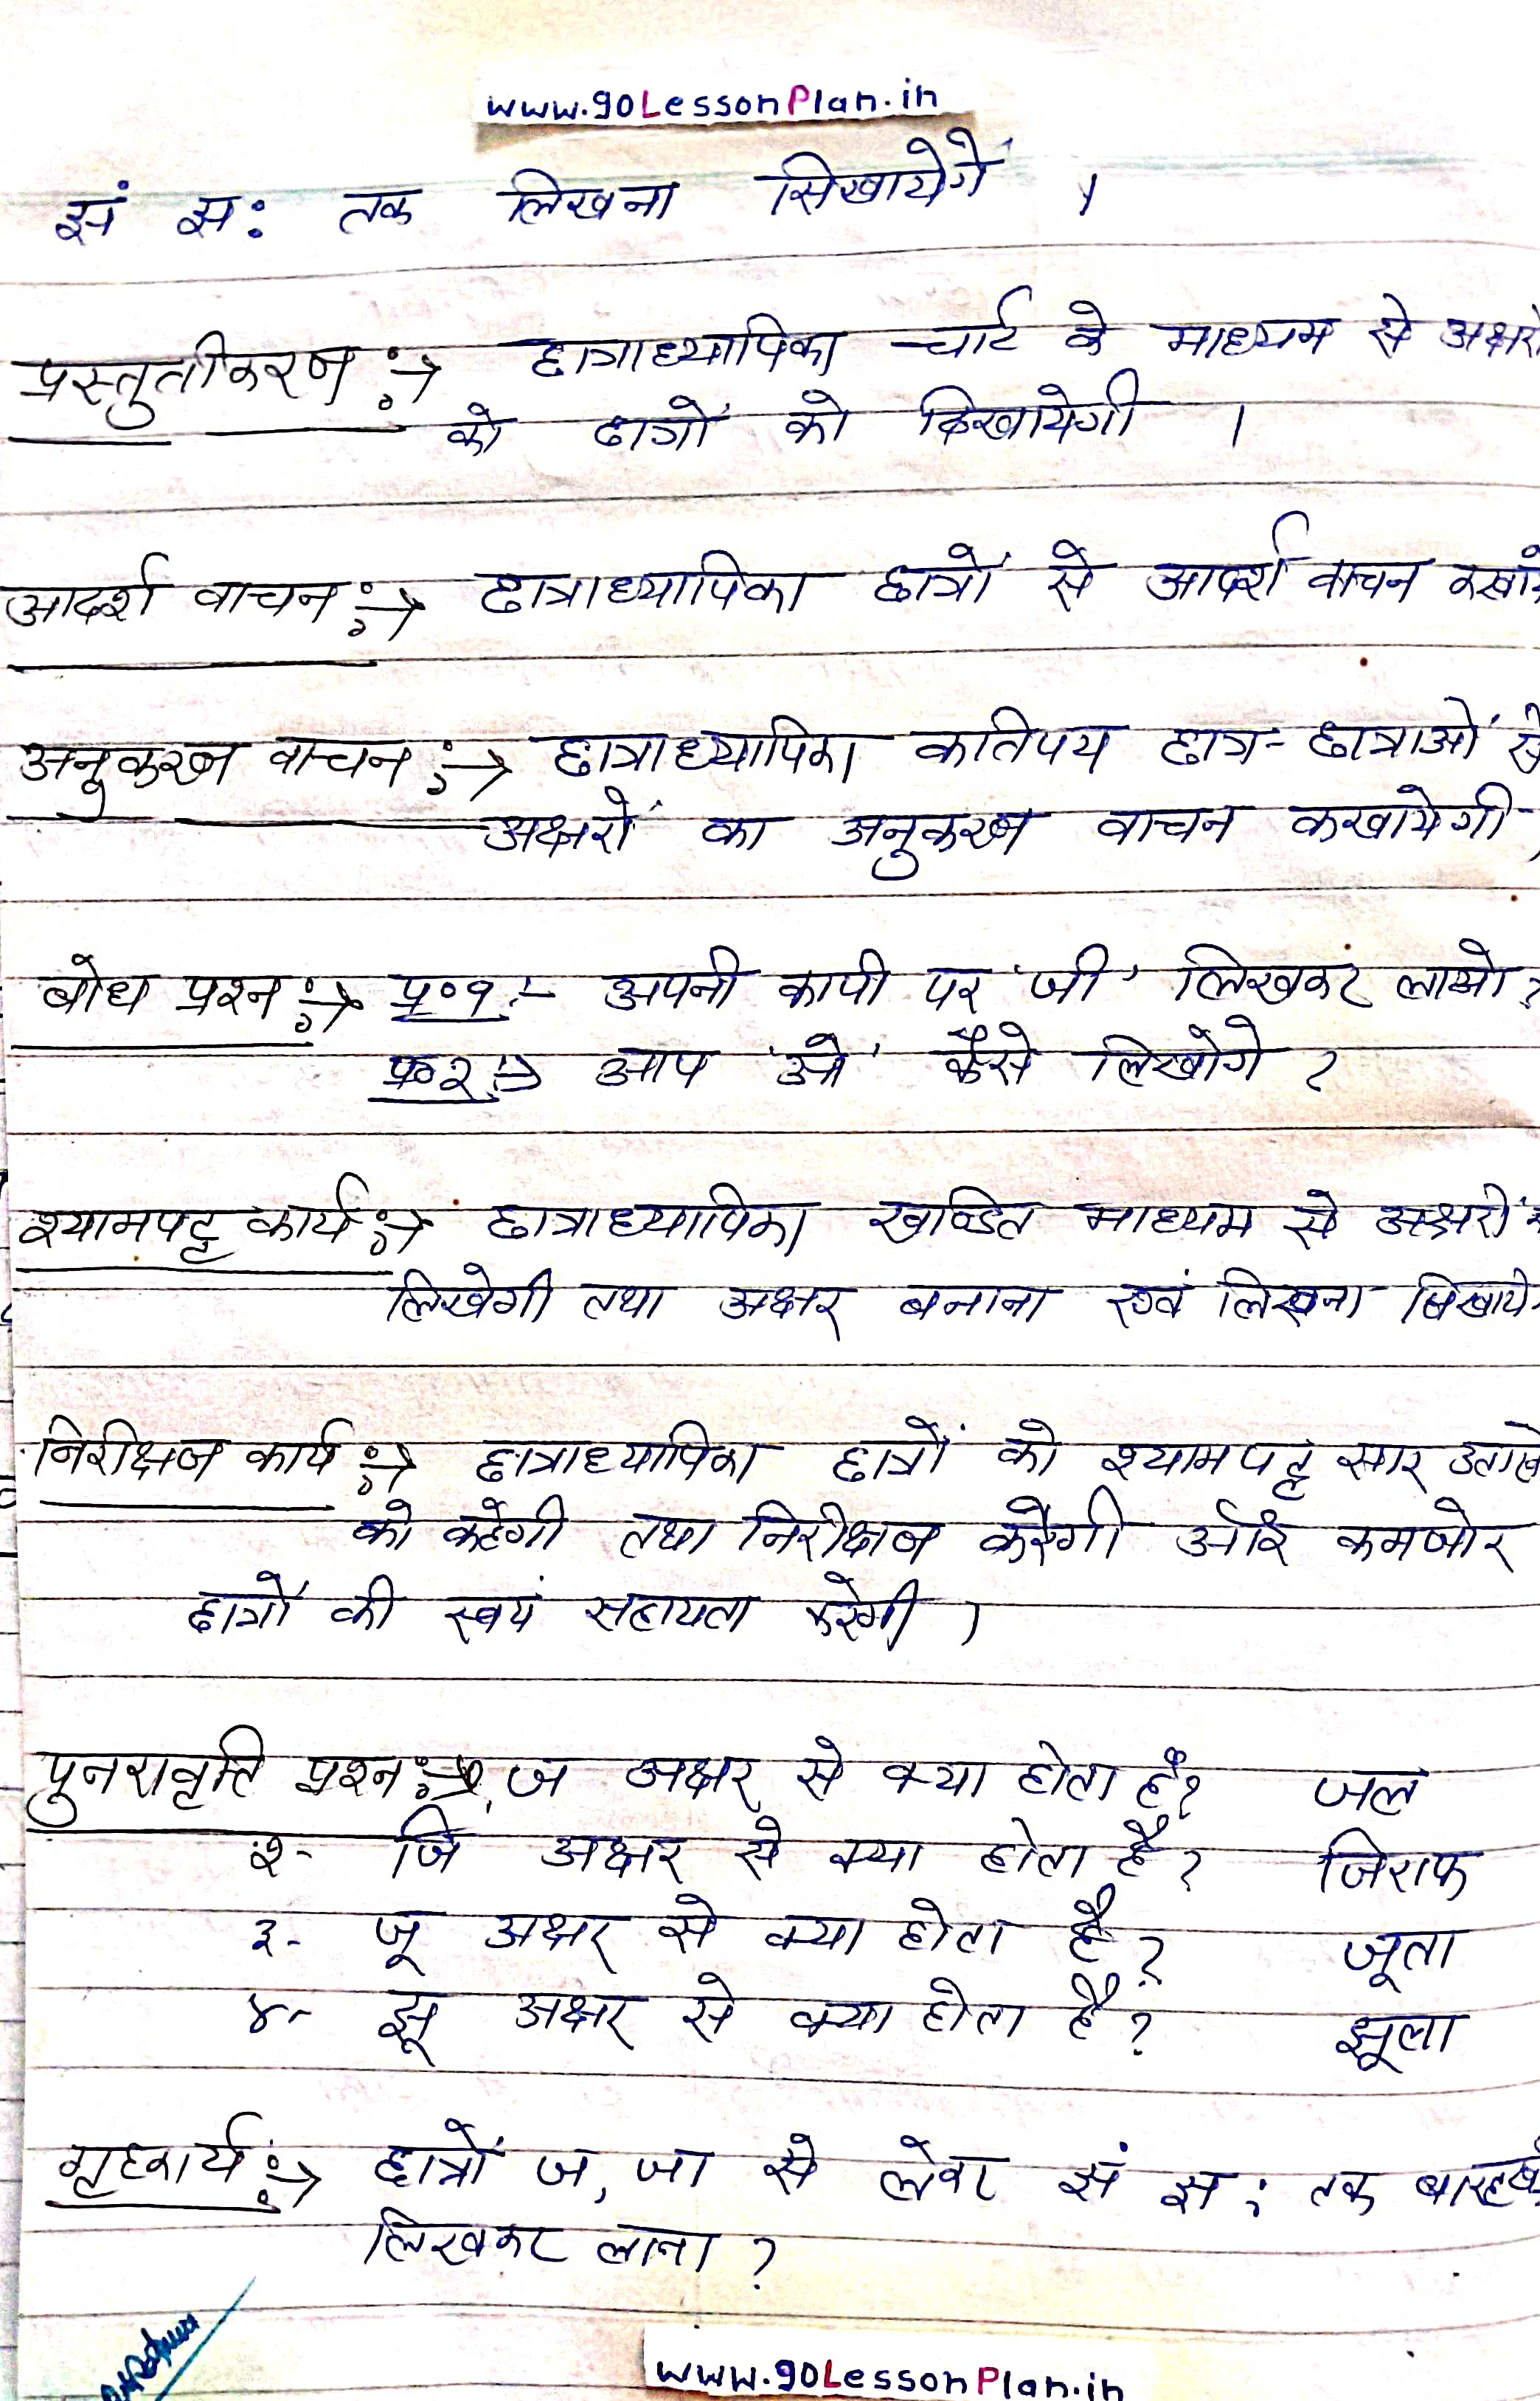 www.90LessonPlan.in
झं झः तक लिखना सिखायेगें ।
प्रस्तुतीकरण :→ छात्राध्यापिका चार्ट के माध्यम से
को छात्रों को दिखायेगी ।
आदर्श वाचन :→ छात्राध्यापिका छात्रों से आदर्श वाचन
अनुकरण वाचन :→ छात्राध्यापिका कतिपय छात्र-छात्राओं
अक्षरों का अनुकरण वाचन करवायेगी
बोध प्रश्न :→ प्र०१ :- अपनी कापी पर 'जी' लिखकर लाओ ?
प्र०२ :→ आप 'ओ' कैसे लिखोगे ?
श्यामपट्ट कार्य :→ छात्राध्यापिका खण्डित माध्यम से अक्षरों
लिखेगी तथा अक्षर बनाना एवं लिखना
निरीक्षण कार्य :→ छात्राध्यापिका छात्रों को श्यामपट्ट सार
को कहेगी तथा निरीक्षण करेगी और कमजोर
छात्रों की स्वयं सहायता करेगी ।
पुनरावृत्ति प्रश्न :→ १, ज अक्षर से क्या होता है? जल
२- जि अक्षर से क्या होता है? जिराफ
३- जू अक्षर से क्या होता है? जूता
४- झू अक्षर से क्या होता है? झूला
गृहकार्य :→ छात्रों ज, जा से लेकर झं झः तक
लिखकर लाना ?
www.90LessonPlan.in